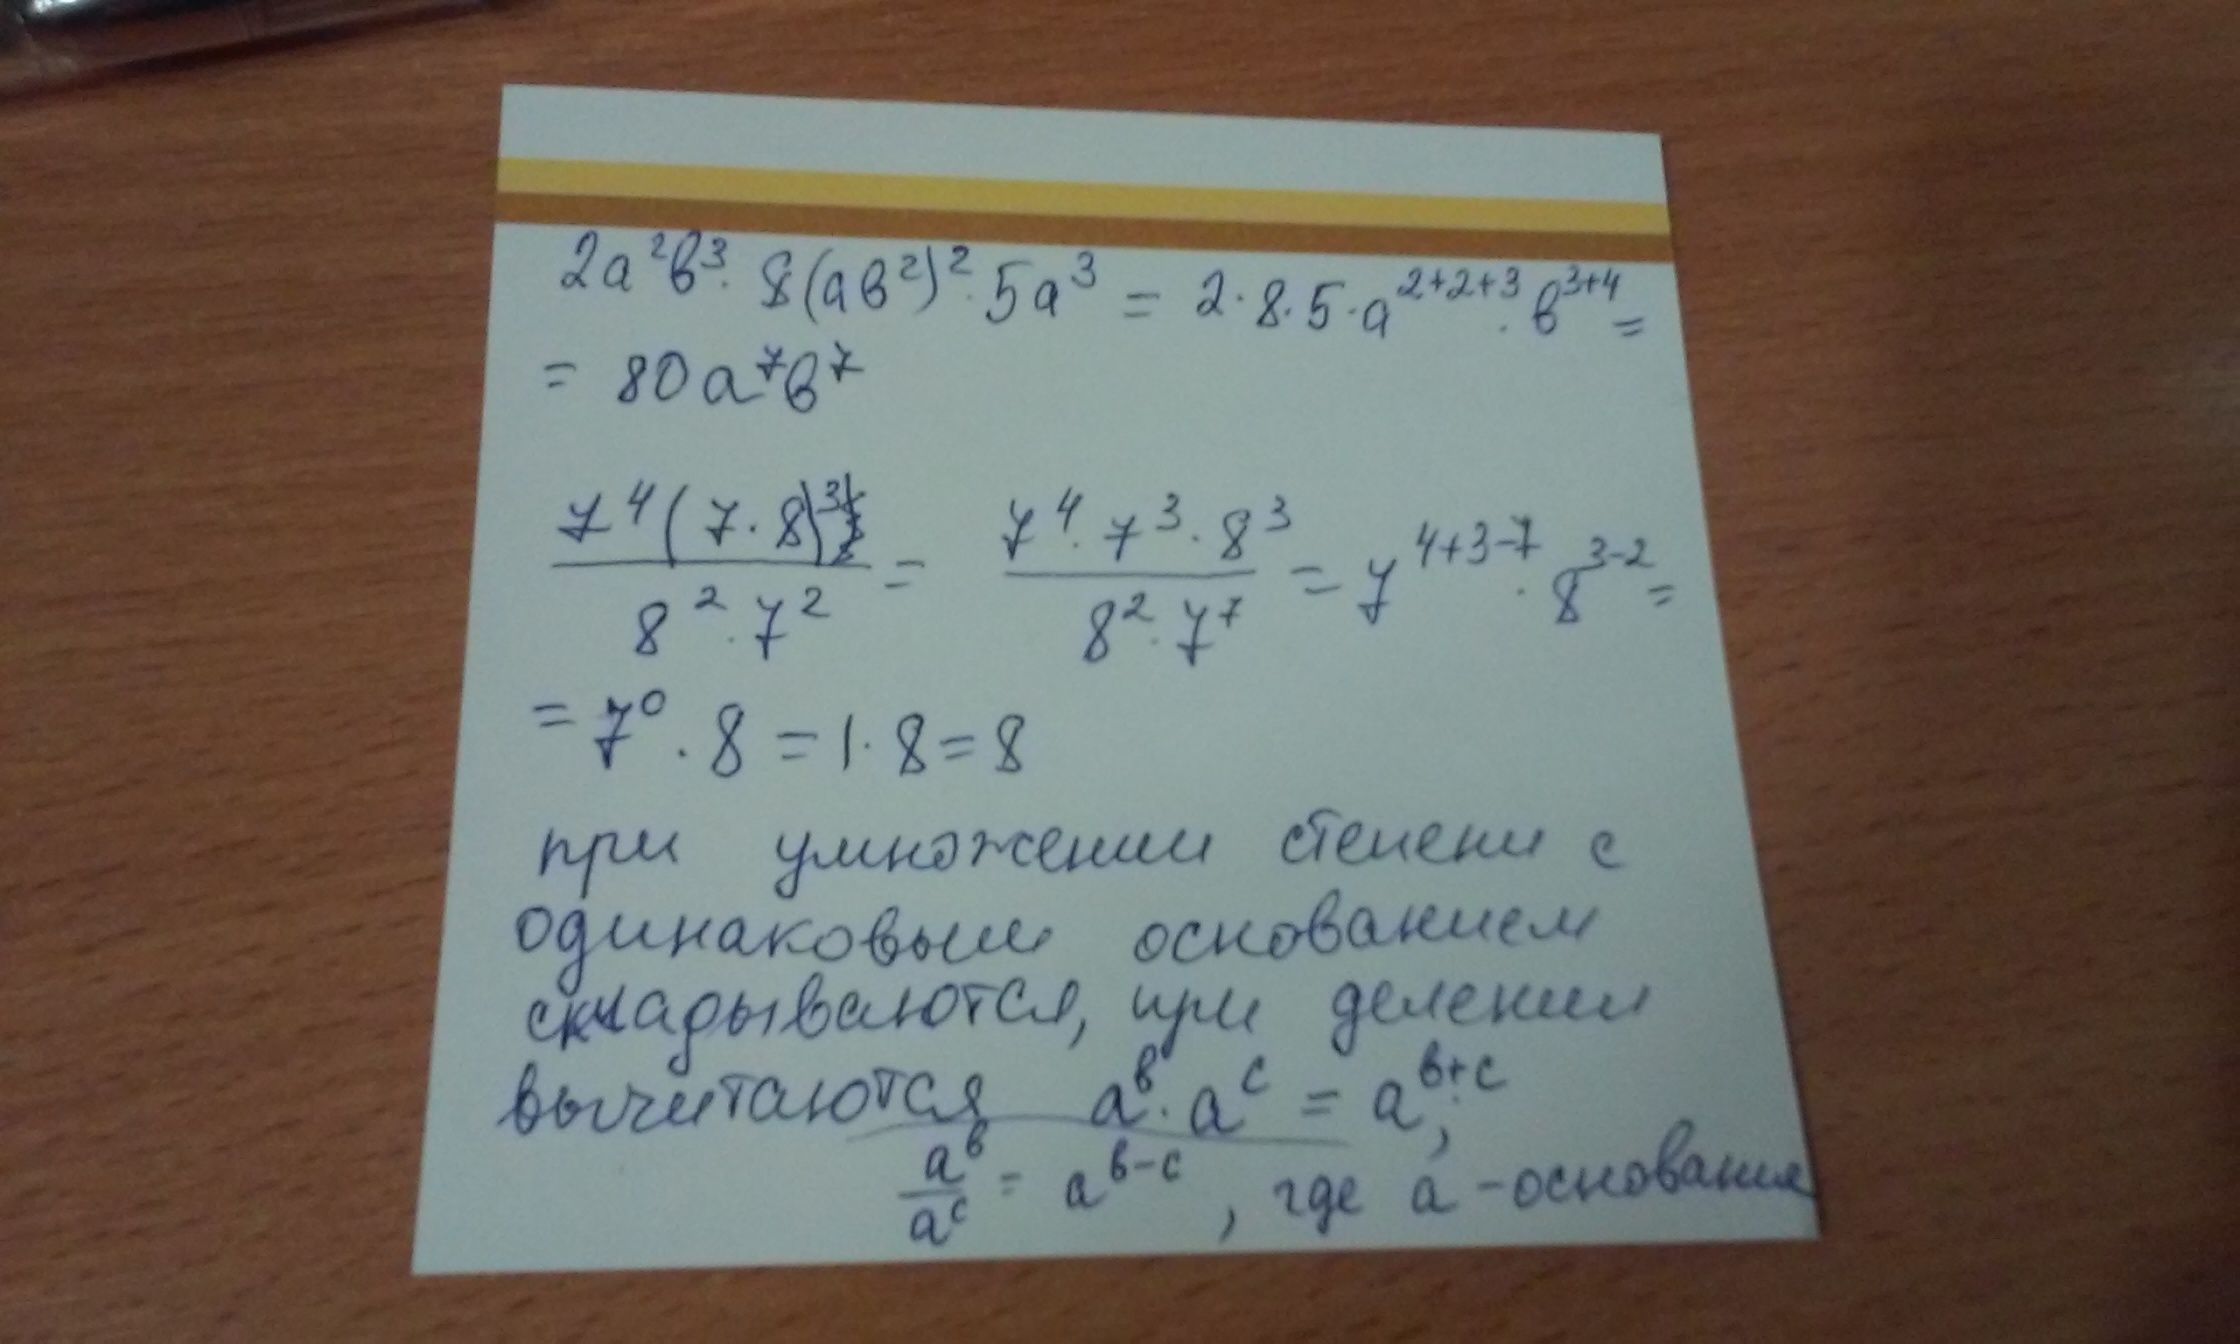 2a²b³ · 8(ab²)² · 5a³ = 2·8·5·a²⁺²⁺³ · b³⁺⁴ =
= 80a⁷b⁷
7⁴(7·8)³ / 8²·7² = 7⁴·7³·8³ / 8²·7⁷ = 7⁴⁺³⁻⁷ · 8³⁻² =
= 7⁰ · 8 = 1·8 = 8
при умножении степени с
одинаковым основанием
складываются, при делении
вычитаются aᵇ · aᶜ = aᵇ⁺ᶜ,
aᵇ / aᶜ = aᵇ⁻ᶜ, где a - основание